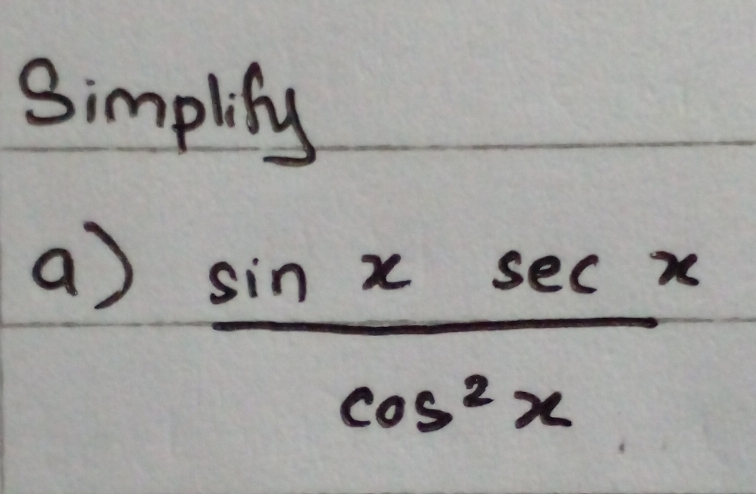 Simplify
a) sin x sec x
cos²x